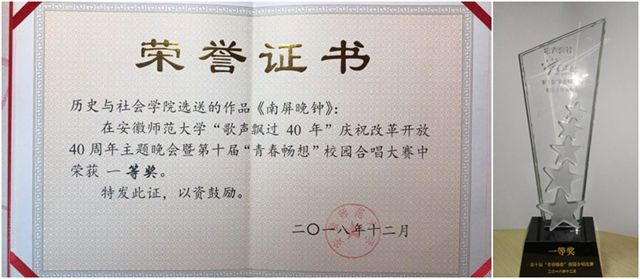 荣誉证书
历史与社会学院选送的作品《南屏晚钟》:
在安徽师范大学“歌声飘过 40 年”庆祝改革开放
40 周年主题晚会暨第十届“青春畅想”校园合唱大赛中
荣获 一等奖。
特发此证，以资鼓励。
二〇一八年十二月
一等奖
第十届“青春畅想”校园合唱比赛
二〇一八年十二月